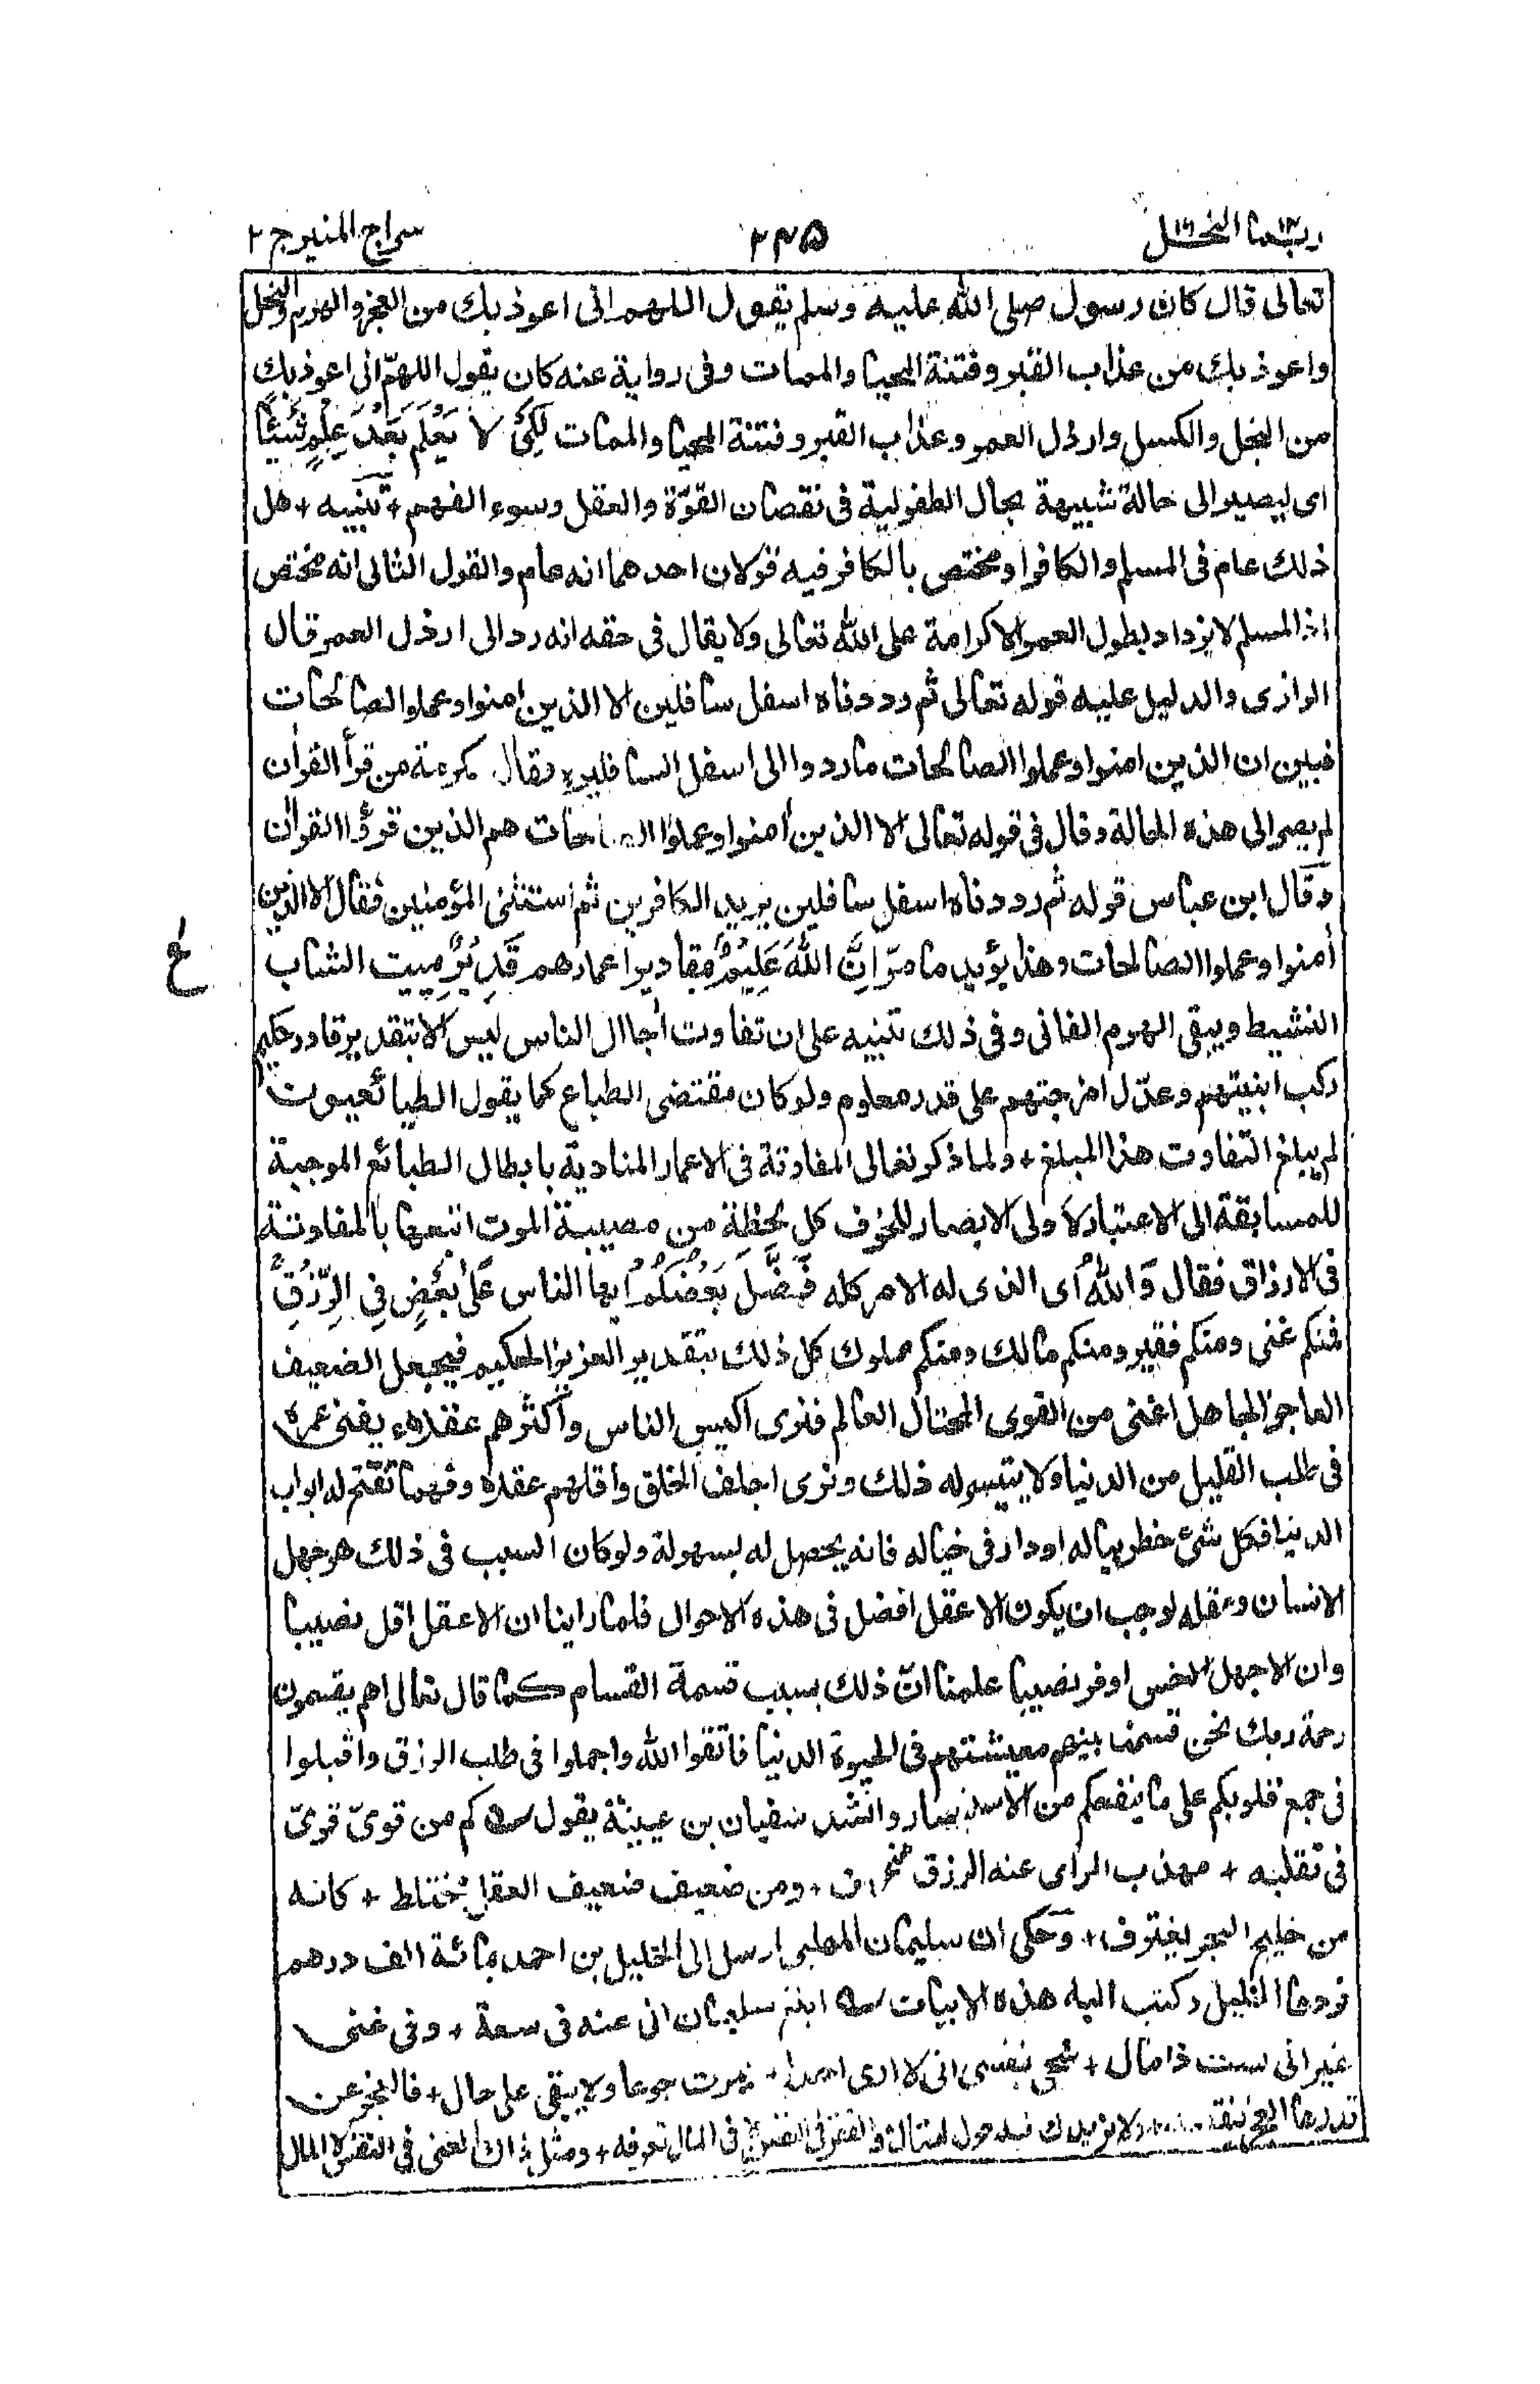 ربما١٤ النحل١٦
٢٣٥
سراج المنير ج ٢
تعالى قال كان رسول صلى الله عليه وسلم يقول اللهم انى اعوذ بك من العجز والهرم والبخل
واعوذ بك من عذاب القبر وفتنة المحيا والممات وفى رواية عنه كان يقول اللهمّ انى اعوذ بك
من البخل والكسل وارذل العمر وعذاب القبر وفتنة المحيا والممات لِكَىْ لَا يَعْلَمَ بَعْدَ عِلْمٍ شَيْئًا
اى ليصير الى حالة شبيهة بحال الطفولية فى نقصان القوّة والعقل وسوء الفهم + تنبيه + هل
ذلك عام فى المسلم والكافر او مختص بالكافر فيه قولان احدهما انه عام والقول الثانى انه مختص
اذ المسلم لا يزداد بطول العمر الا كرامة على الله تعالى ولا يقال فى حقه انه رد الى ارذل العمر قال
الرازى والدليل عليه قوله تعالى ثم رددناه اسفل سافلين الا الذين امنوا وعملوا الصالحات
فبين ان الذين امنوا وعملوا الصالحات ما ردوا الى اسفل السافلين وقال عكرمة من قرأ القران
لم يصر الى هذه الحالة وقال فى قوله تعالى الا الذين أمنوا وعملوا الصالحات هم الذين قرؤا القران
وقال ابن عباس قوله ثم رددناه اسفل سافلين يريد الكافرين ثم استثنى المؤمنين فقال الا الذين
أمنوا وعملوا الصالحات وهذا يؤيد ما مرّ اِنَّ اللهَ عَلِيْمٌ بمقادير اعمارهم قَدِيْرٌ يميت الشاب
ع
النشيط ويبقى الهرم الفانى وفى ذلك تنبيه على ان تفاوت أجال الناس ليس الا بتقدير قادر حكيم
ركب ابنيتهم وعدّل امزجتهم على قدر معلوم ولو كان مقتضى الطباع كما يقول الطبائعيون
لم يبلغ التفاوت هذا المبلغ + ولما ذكر تعالى المفاوتة فى الاعمار المنادية بابطال الطبائع الموجبة
للمسابقة الى الاعتبار لاولى الابصار للخوف كل لحظة من مصيبة الموت اتبعها بالمفاوتة
فى الارزاق فقال وَاللهُ اى الذى له الامر كله فَضَّلَ بَعْضَكُمْ ايها الناس عَلٰى بَعْضٍ فِى الرِّزْقِ
فمنكم غنى ومنكم فقير ومنكم مالك ومنكم مملوك كل ذلك بتقدير العزيز الحكيم فيجعل الضعيف
العاجز الجاهل اغنى من القوى المحتال العالم فترى اكيس الناس واكثرهم عقلا يفنى عمره
فى طلب القليل من الدنيا ولا يتيسر له ذلك وترى اجلف الخلق وأقلهم عقلا وفهما تفتح له ابواب
الدنيا فكل شئ خطر بباله او دار فى خياله فانه يحصل له بسهولة ولو كان السبب فى ذلك هو جهل
الانسان وعقله لوجب ان يكون الاعقل افضل فى هذه الاحوال فلما راينا ان الاعقل اقل نصيبا
وان الاجهل الاخس اوفر نصيبا علمنا انّ ذلك بسبب قسمة القسام كما قال تعالى اهم يقسمون
رحمة ربك نحن قسمنا بينهم معيشتهم فى الحيوة الدنيا فاتقوا الله واجملوا فى طلب الرزق واقبلوا
فى جمع قلوبكم على ما ينفعكم من الاستبصار وانشد سفيان بن عيينة يقول كم من قوىّ قوىّ
فى تقلبه + مهذب الراى عنه الرزق منحرف + ومن ضعيف ضعيف العقل مختلط + كانه
من خليج البحر يغترف + وحكى ان سليمان المهلبى ارسل الى الخليل بن احمد بمائة الف درهم
فردها الخليل وكتب اليه هذه الابيات ابلغ سليمان انى عنه فى سعة + وفى غنى
غير انى لست ذا مال + شحى بنفسى انى لا ارى احدا + يموت جوعا ولا يبقى على حال + فالرزق عن
قدر لا العجز ينقصه ولا يزيدك فيه حول محتال والفقر فى النفس لا فى المال تعرفه + ومثل ذاك الغنى فى النفس لا المال